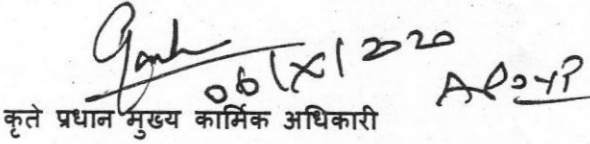 06/X/2020
कृते प्रधान मुख्य कार्मिक अधिकारी